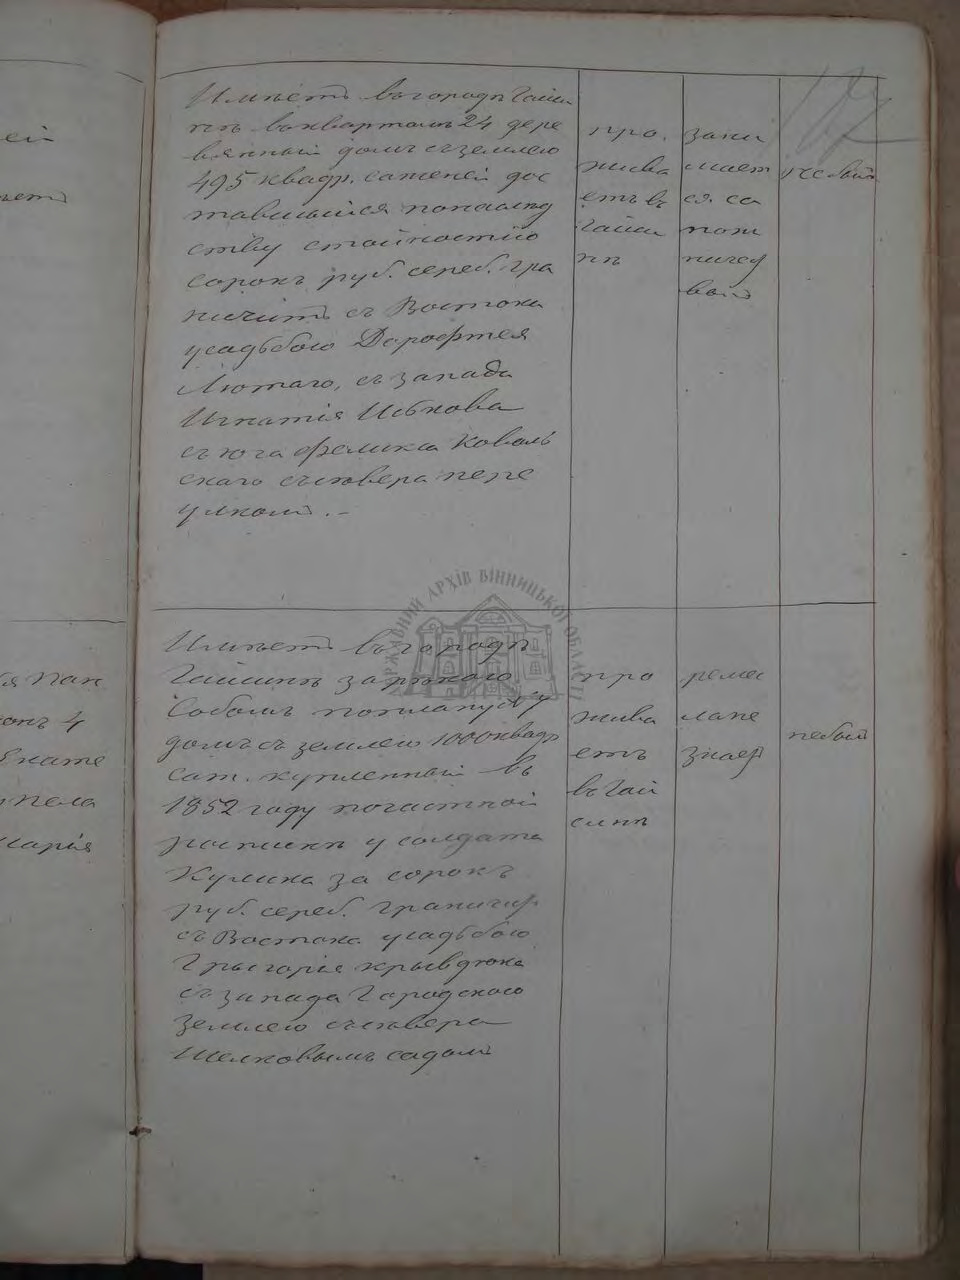 ей
Имѣетъ въ городѣ Гайси
нѣ въ кварталѣ 24 дере
вянный домъ съ землею
495 квадр. саженей дос
тавшійся по наслѣд
ству стоимостію
сорокъ руб. сереб. гра
ничитъ съ Востока
усадьбою Дорофтея
Лютаго, съ запада
Игнатія
съ юга Феликса Коваль
скаго съ сѣвера пере
улкомъ. –
про
жива
етъ въ
Гайси
нѣ
зани
мает
ся са
пож
ничес
вомъ
небылъ
ДЕРЖАВНИЙ АРХІВ ВІННИЦЬКОЇ ОБЛАСТІ
Имѣетъ въ городѣ
Гайсинѣ за рѣкою
Собомъ по плану
домъ съ землею 1000 квадр
саж. купленный въ
1852 году по частной
роспискѣ у солдата
Кулика за сорокъ
руб. сереб. граничир
съ Востока усадьбою
Грыгорія Крывдюка
съ запада Городскою
землею съ сѣвера
Шелковымъ садомъ
про
жива
етъ
въ Гай
синѣ
ремес
ла не
знает
небылъ
пан
4
Екате
пела
марія